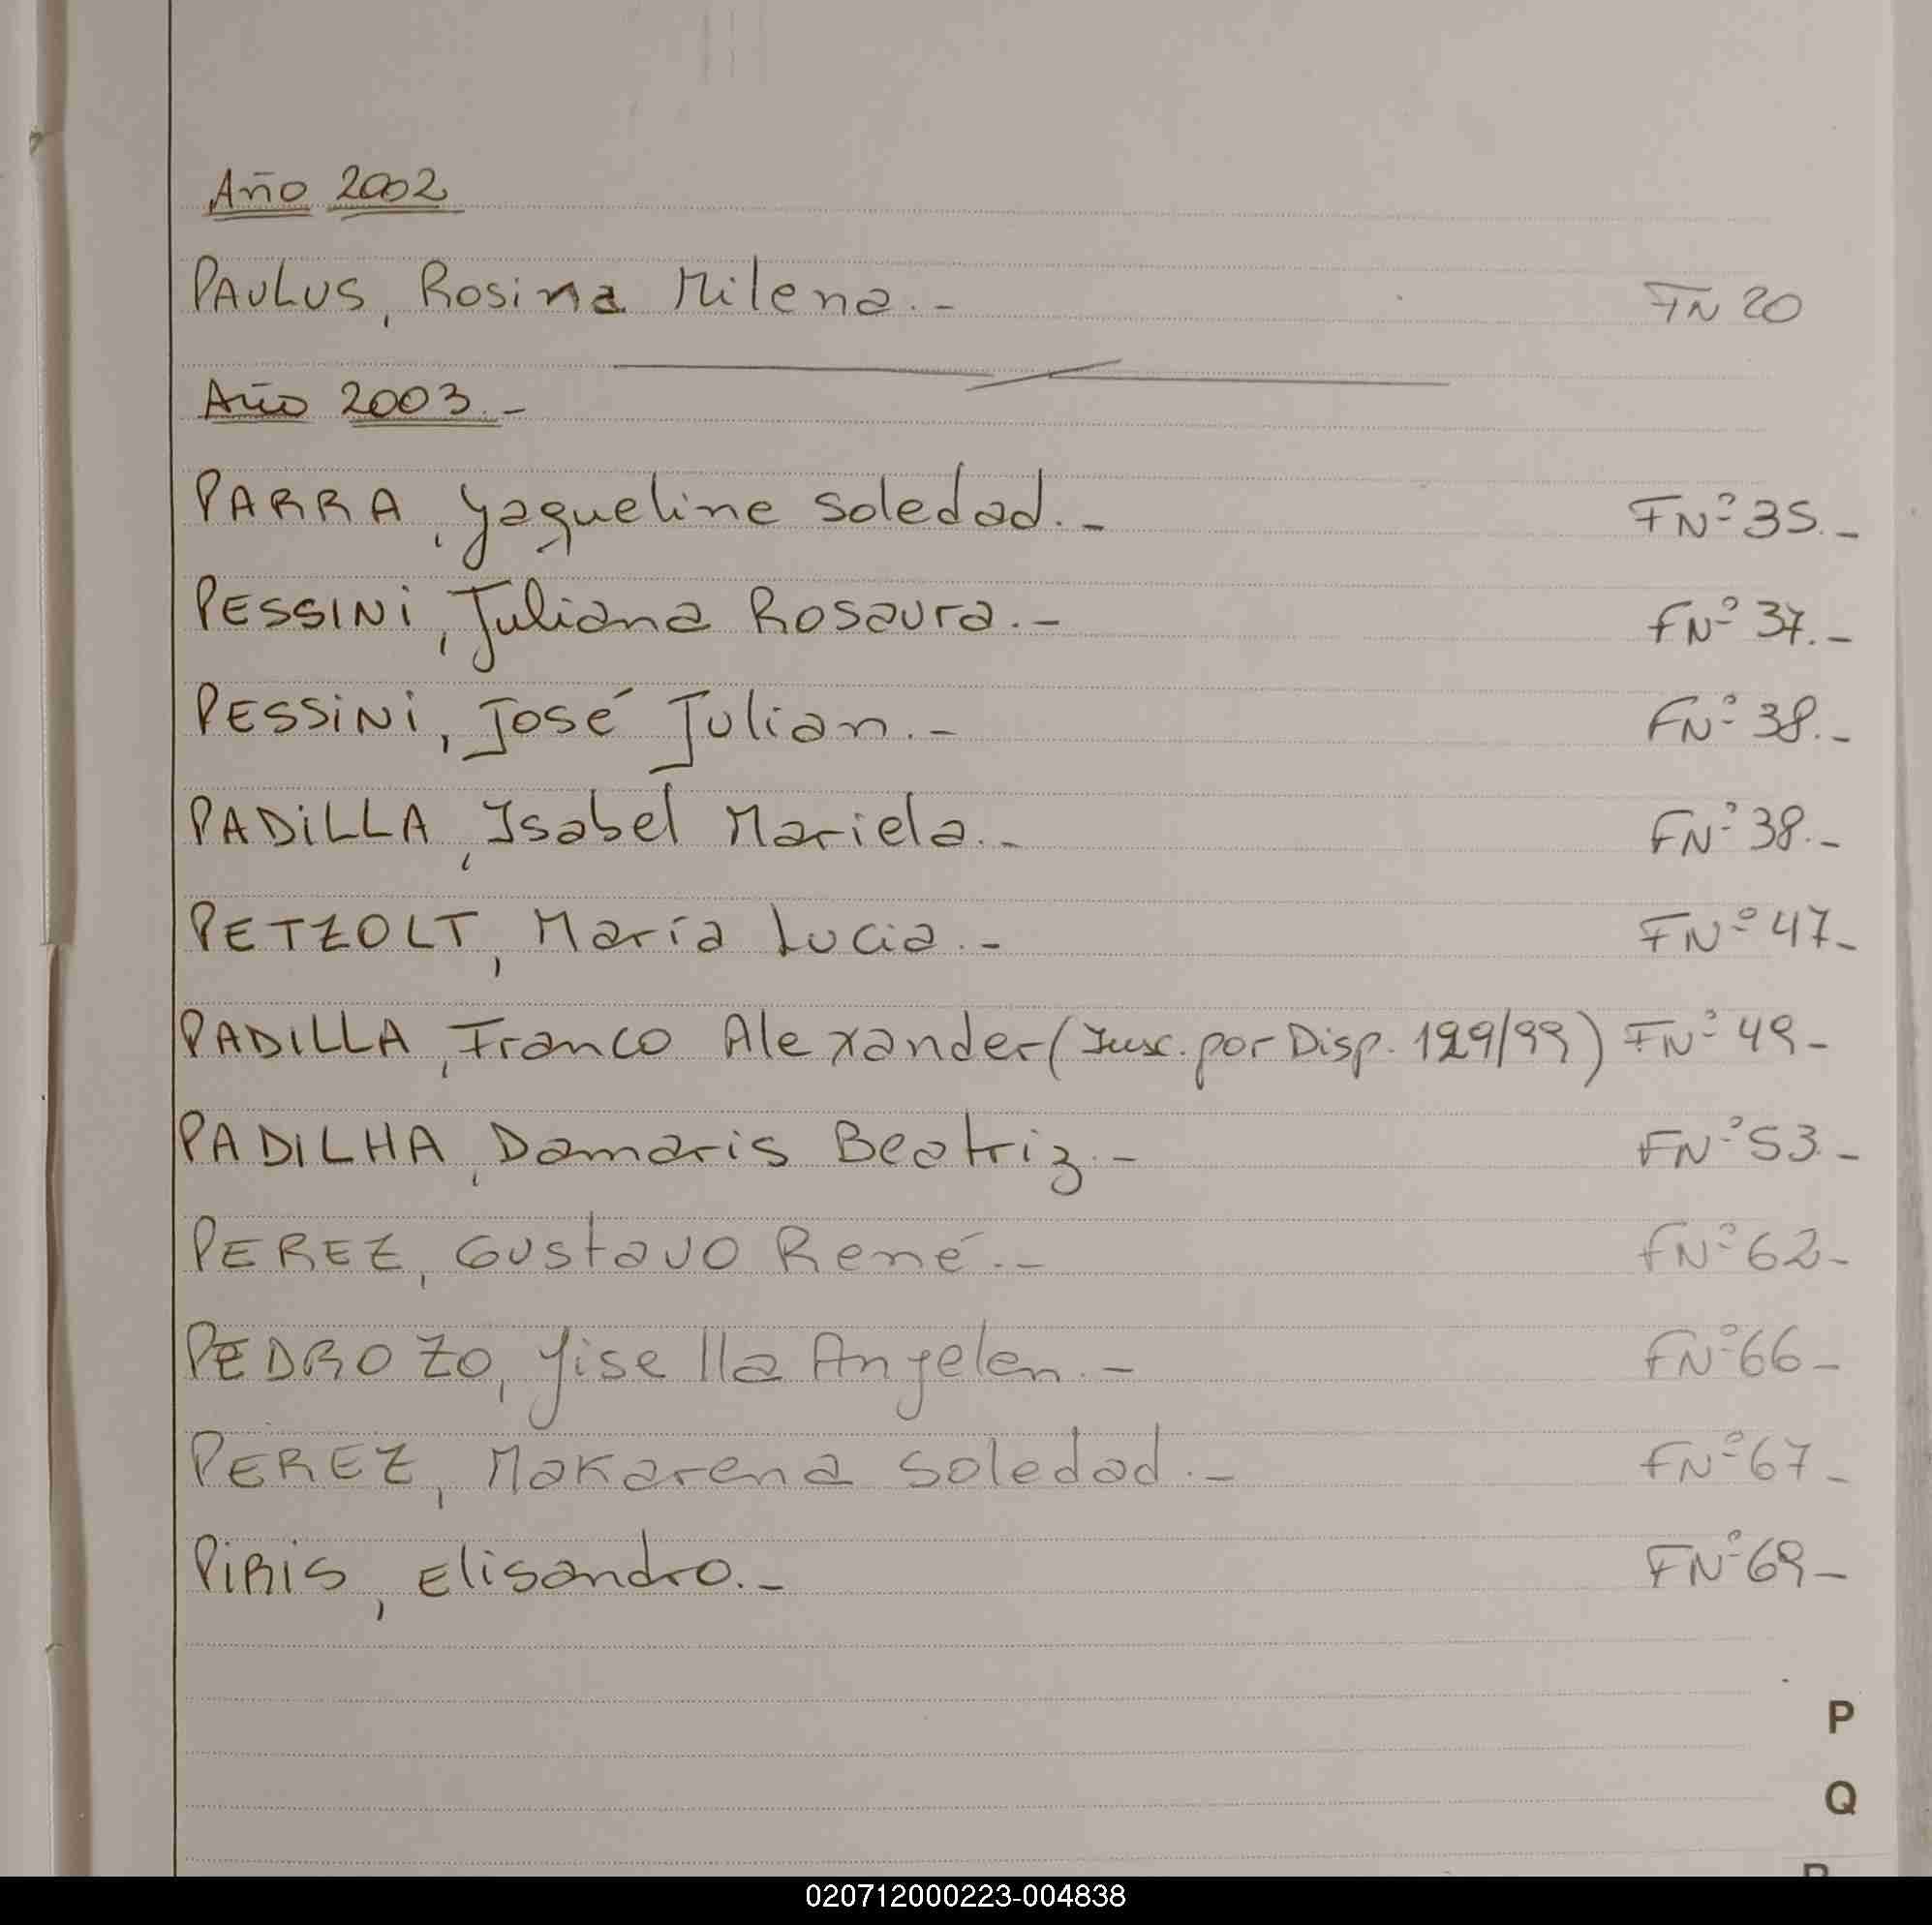 Año 2002
PAULUS, Rosina Milena.- FN 20
Año 2003.-
PARRA, Yaqueline Soledad.- FNº 35.-
PESSINI, Juliana Rosaura.- FNº 37.-
PESSINI, José Julian.- FNº 38.-
PADILLA, Isabel Mariela.- FNº 38.-
PETZOLT, María Lucia.- FNº 47-
PADILLA, Franco Alexander (Insc. por Disp. 129/99) FNº 49-
PADILHA, Damaris Beatriz.- FNº 53.-
PEREZ, Gustavo René.- FNº 62-
PEDROZO, Yisella Anyelen.- FNº 66-
PEREZ, Makarena Soledad.- FNº 67-
PIRIS, Elisandro.- FNº 69-
P
Q
020712000223-004838